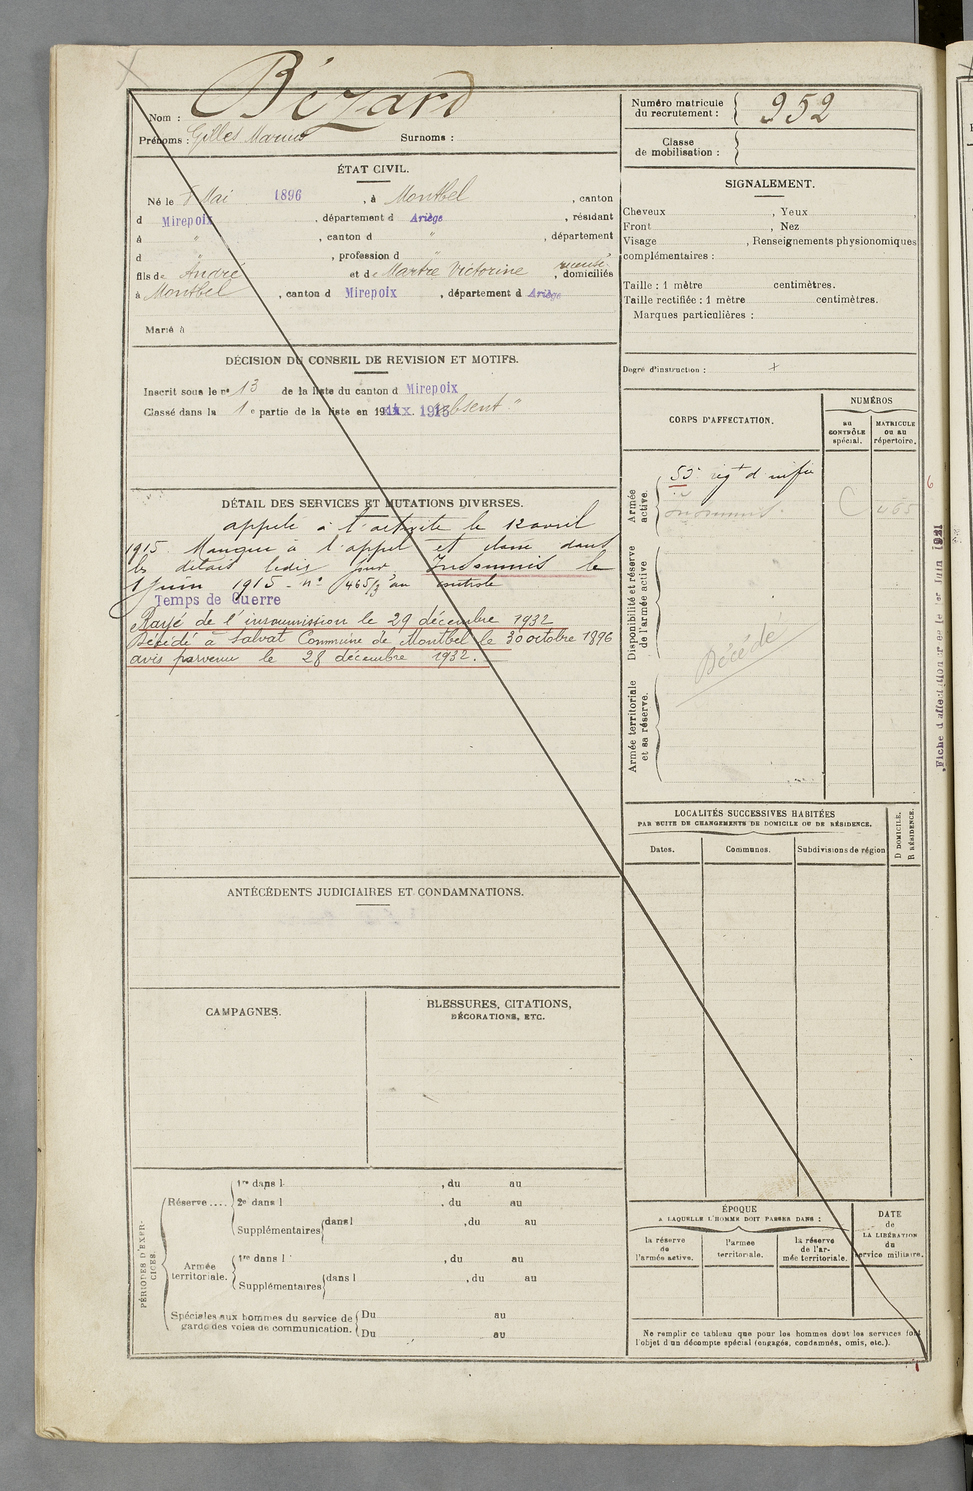 Nom : Bézard
Prénoms : Gilles Marius Surnoms :
ÉTAT CIVIL.
Né le 8 Mai 1896, à Montbel, canton
d Mirepoix, département d Ariège, résidant
à ", canton d ", département
d ", profession d
fils de André et de Martre Victorine, domiciliés
à Montbel, canton d Mirepoix, département d Ariège
Marié à
DÉCISION DU CONSEIL DE REVISION ET MOTIFS.
Inscrit sous le n° 13 de la liste du canton d Mirepoix
Classé dans la 1e partie de la liste en 1915 "absent"
DÉTAIL DES SERVICES ET MUTATIONS DIVERSES.
appelé à l'activité le 12 avril
1915. Manque à l'appel et dans
les délais Insoumis le
1 juin 1915 - n° 465 au controle
Temps de Guerre
Rayé de l'insoumission le 29 décembre 1932
Décédé à Salvat Commune de Montbel le 30 octobre 1896
avis parvenu le 28 décembre 1932.
ANTÉCÉDENTS JUDICIAIRES ET CONDAMNATIONS.
CAMPAGNES.
BLESSURES, CITATIONS,
DÉCORATIONS, ETC.
PÉRIODES D'EXER-
CICES.
Réserve .... 1re dans l , du au
2e dans l , du au
Supplémentaires dans l , du au
Armée
territoriale. 1re dans l , du au
Supplémentaires dans l , du au
Spéciales aux hommes du service de
garde des voies de communication. Du au
Du au
Numéro matricule
du recrutement : 952
Classe
de mobilisation :
SIGNALEMENT.
Cheveux , Yeux ,
Front , Nez
Visage , Renseignements physionomiques
complémentaires :
Taille : 1 mètre centimètres.
Taille rectifiée : 1 mètre centimètres.
Marques particulières :
Degré d'instruction : +
CORPS D'AFFECTATION.
NUMÉROS
au
CONTRÔLE
spécial.
MATRICULE
ou au
répertoire.
Armée
active.
53e rigt d'infie
insoumis. C 465
Disponibilité et réserve
de l'armée active.
Décédé
Armée territoriale
et sa réserve.
LOCALITÉS SUCCESSIVES HABITÉES
PAR SUITE DE CHANGEMENTS DE DOMICILE OU DE RÉSIDENCE.
Dates. Communes. Subdivisions de région
D DOMICILE.
R RÉSIDENCE.
ÉPOQUE
A LAQUELLE L'HOMME DOIT PASSER DANS :
la réserve
de
l'armée active.
l'armée
territoriale.
la réserve
de l'ar-
mée territoriale.
DATE
de
LA LIBÉRATION
du
service militaire.
Ne remplir ce tableau que pour les hommes dont les services font
l'objet d'un décompte spécial (engagés, condamnés, omis, etc.).